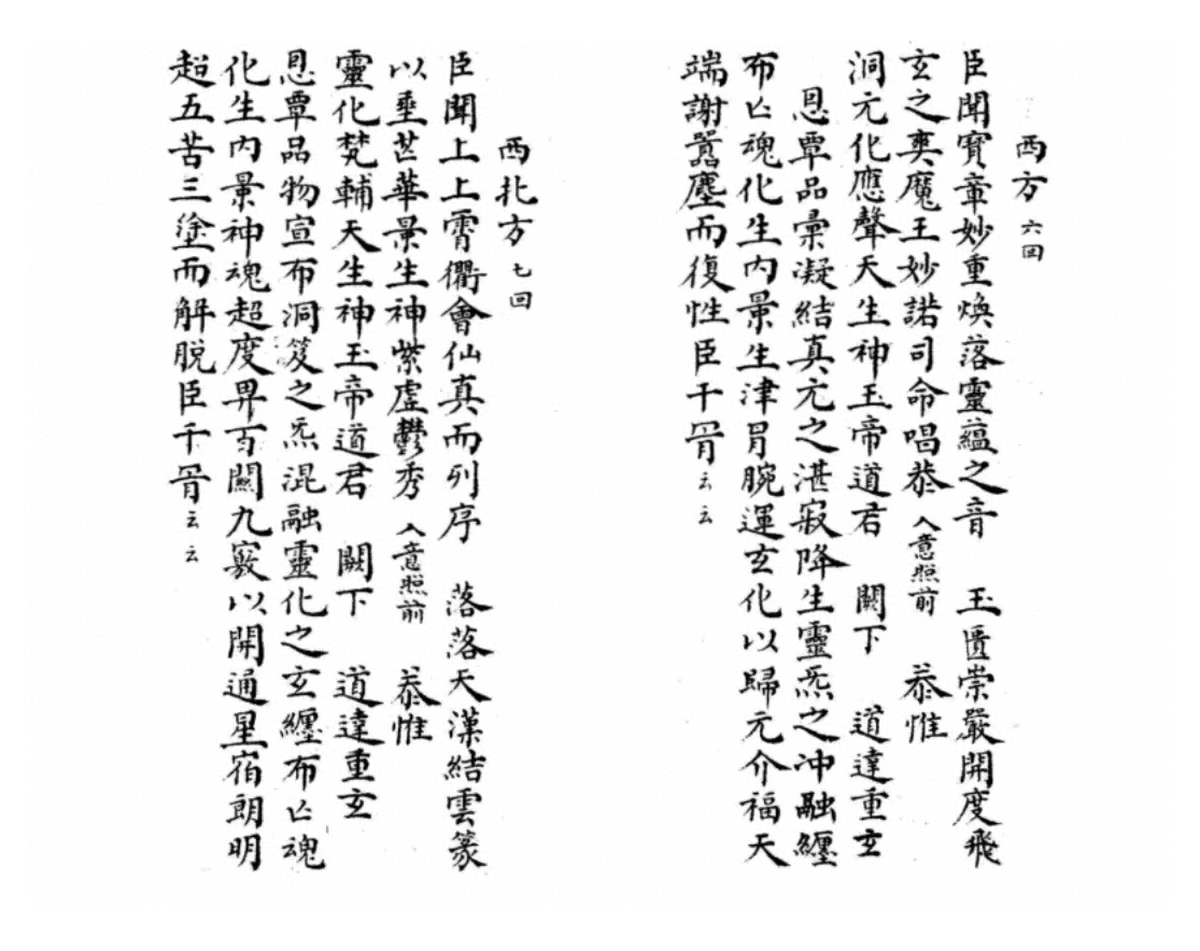 西方 六回
臣聞寳章妙重煥落靈蘊之音 玉匱崇嚴開度飛
玄之爽魔王妙諾司命唱恭 入意照前 恭惟
洞元化應聲天生神玉帝道君 闕下 道達重玄
恩覃品彙凝結真元之湛寂降生靈炁之冲融纏
布亡魂化生内景生津胃腕運玄化以歸元介福天
端謝嚚塵而復性臣干冐云云
西北方 七回
臣聞上上霄衢會仙真而列序 落落天漢結雲篆
以垂芒華景生神紫虗鬱秀 入意照前 恭惟
靈化梵輔天生神玉帝道君 闕下 道達重玄
恩覃品物宣布洞笈之炁混融靈化之玄纏布亡魂
化生内景神魂超度畀百關九竅以開通星宿朗明
超五苦三塗而解脱臣千冐云云